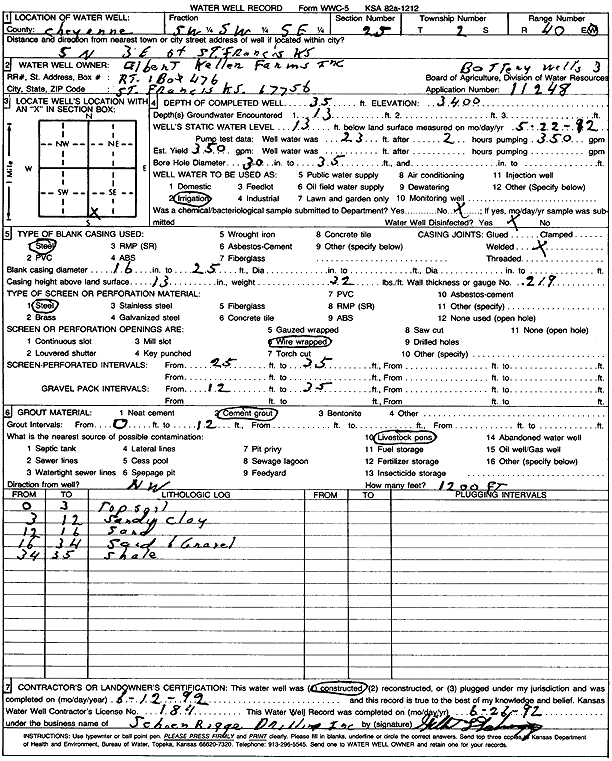 WATER WELL RECORD Form WWC-5 KSA 82a-1212
1 LOCATION OF WATER WELL: Fraction Section Number Township Number Range Number
County: Cheyenne SW ¼ SW ¼ SE ¼ 25 T 2 S R 40 E/W
Distance and direction from nearest town or city street address of well if located within city?
5 N 3 E of ST Francis KS
2 WATER WELL OWNER: Albert Keller Farms Inc Battery wells 3
RR#, St. Address, Box # : RT-1 Box 476 Board of Agriculture, Division of Water Resources
City, State, ZIP Code : ST. Francis KS. 67756 Application Number: 11248
3 LOCATE WELL'S LOCATION WITH AN "X" IN SECTION BOX:
N
NW NE
W E
SW SE
X
S
1 Mile
4 DEPTH OF COMPLETED WELL 35 ft. ELEVATION: 3400
Depth(s) Groundwater Encountered 1. 13 ft. 2. ft. 3. ft.
WELL'S STATIC WATER LEVEL 13 ft. below land surface measured on mo/day/yr 5-22-92
Pump test data: Well water was 23 ft. after 2 hours pumping 350 gpm
Est. Yield 350 gpm: Well water was ft. after hours pumping gpm
Bore Hole Diameter 30 in. to 35 ft., and in. to ft.
WELL WATER TO BE USED AS: 5 Public water supply 8 Air conditioning 11 Injection well
1 Domestic 3 Feedlot 6 Oil field water supply 9 Dewatering 12 Other (Specify below)
2 Irrigation 4 Industrial 7 Lawn and garden only 10 Monitoring well
Was a chemical/bacteriological sample submitted to Department? Yes No X ; If yes, mo/day/yr sample was submitted Water Well Disinfected? Yes X No
5 TYPE OF BLANK CASING USED: 5 Wrought iron 8 Concrete tile CASING JOINTS: Glued Clamped
1 Steel 3 RMP (SR) 6 Asbestos-Cement 9 Other (specify below) Welded X
2 PVC 4 ABS 7 Fiberglass Threaded
Blank casing diameter 16 in. to 25 ft., Dia in. to ft., Dia in. to ft.
Casing height above land surface 13 in., weight 32 lbs./ft. Wall thickness or gauge No. 219
TYPE OF SCREEN OR PERFORATION MATERIAL: 7 PVC 10 Asbestos-cement
1 Steel 3 Stainless steel 5 Fiberglass 8 RMP (SR) 11 Other (specify)
2 Brass 4 Galvanized steel 6 Concrete tile 9 ABS 12 None used (open hole)
SCREEN OR PERFORATION OPENINGS ARE: 5 Gauzed wrapped 8 Saw cut 11 None (open hole)
1 Continuous slot 3 Mill slot 6 Wire wrapped 9 Drilled holes
2 Louvered shutter 4 Key punched 7 Torch cut 10 Other (specify)
SCREEN-PERFORATED INTERVALS: From 25 ft. to 35 ft., From ft. to ft.
From ft. to ft., From ft. to ft.
GRAVEL PACK INTERVALS: From 12 ft. to 35 ft., From ft. to ft.
From ft. to ft., From ft. to ft.
6 GROUT MATERIAL: 1 Neat cement 2 Cement grout 3 Bentonite 4 Other
Grout Intervals: From 0 ft. to 12 ft., From ft. to ft., From ft. to ft.
What is the nearest source of possible contamination: 10 Livestock pens 14 Abandoned water well
1 Septic tank 4 Lateral lines 7 Pit privy 11 Fuel storage 15 Oil well/Gas well
2 Sewer lines 5 Cess pool 8 Sewage lagoon 12 Fertilizer storage 16 Other (specify below)
3 Watertight sewer lines 6 Seepage pit 9 Feedyard 13 Insecticide storage
Direction from well? NW How many feet? 1200 FT
FROM TO LITHOLOGIC LOG FROM TO PLUGGING INTERVALS
0 3 Top soil
3 12 Sandy Clay
12 16 Sand
16 34 Sand & Gravel
34 35 Shale
7 CONTRACTOR'S OR LANDOWNER'S CERTIFICATION: This water well was (1) constructed, (2) reconstructed, or (3) plugged under my jurisdiction and was
completed on (mo/day/year) 6-12-92 and this record is true to the best of my knowledge and belief. Kansas
Water Well Contractor's License No. 184 This Water Well Record was completed on (mo/day/yr) 6-26-92
under the business name of Drilling Inc by (signature)
INSTRUCTIONS: Use typewriter or ball point pen. PLEASE PRESS FIRMLY and PRINT clearly. Please fill in blanks, underline or circle the correct answers. Send top three copies to Kansas Department
of Health and Environment, Bureau of Water, Topeka, Kansas 66620-7320. Telephone: 913-296-5545. Send one to WATER WELL OWNER and retain one for your records.